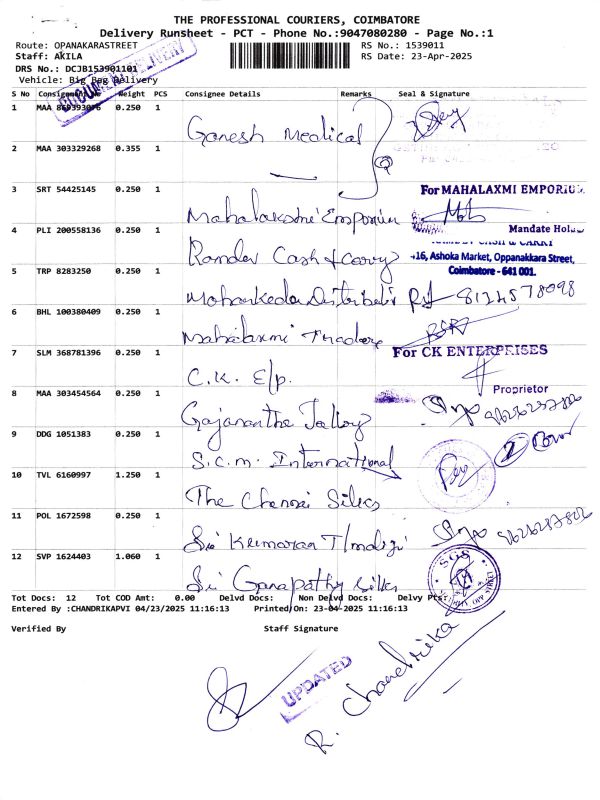 THE PROFESSIONAL COURIERS, COIMBATORE
Delivery Runsheet - PCT - Phone No.:9047080280 - Page No.:1
Route: OPANAKARASTREET
RS No.: 1539011
Staff: AKILA
RS Date: 23-Apr-2025
DRS No.: DCJB153901101
Vehicle: Big Bag Delivery
S No Consignment No Weight PCS Consignee Details Remarks Seal & Signature
1 MAA 0.250 1
Ganesh Medical
2 MAA 303329268 0.355 1
3 SRT 54425145 0.250 1
For MAHALAXMI EMPORIU
Mahalakshmi Emporium
4 PLI 200558136 0.250 1
Mandate Hol
Ramdev Cash & Carry
CASH & CARRY
16, Ashoka Market, Oppanakkara Street,
5 TRP 8283250 0.250 1
Coimbatore - 641 001.
8124578098
6 BHL 100380409 0.250 1
Mahalaxmi Traders
7 SLM 368781396 0.250 1
For CK ENTERPRISES
C.K. E/p.
8 MAA 303454564 0.250 1
Proprietor
9 DDG 1051383 0.250 1
S.C.M. International
10 TVL 6160997 1.250 1
The Chennai Silks
11 POL 1672598 0.250 1
Sri Kumaran
12 SVP 1624403 1.060 1
Sri Ganapathy Silks
Tot Docs: 12 Tot COD Amt: 0.00 Delvd Docs: Non Delvd Docs: Delvy Pts:
Entered By :CHANDRIKAPVI 04/23/2025 11:16:13 Printed On: 23-04-2025 11:16:13
Verified By Staff Signature
UPDATED
R. Chandrika